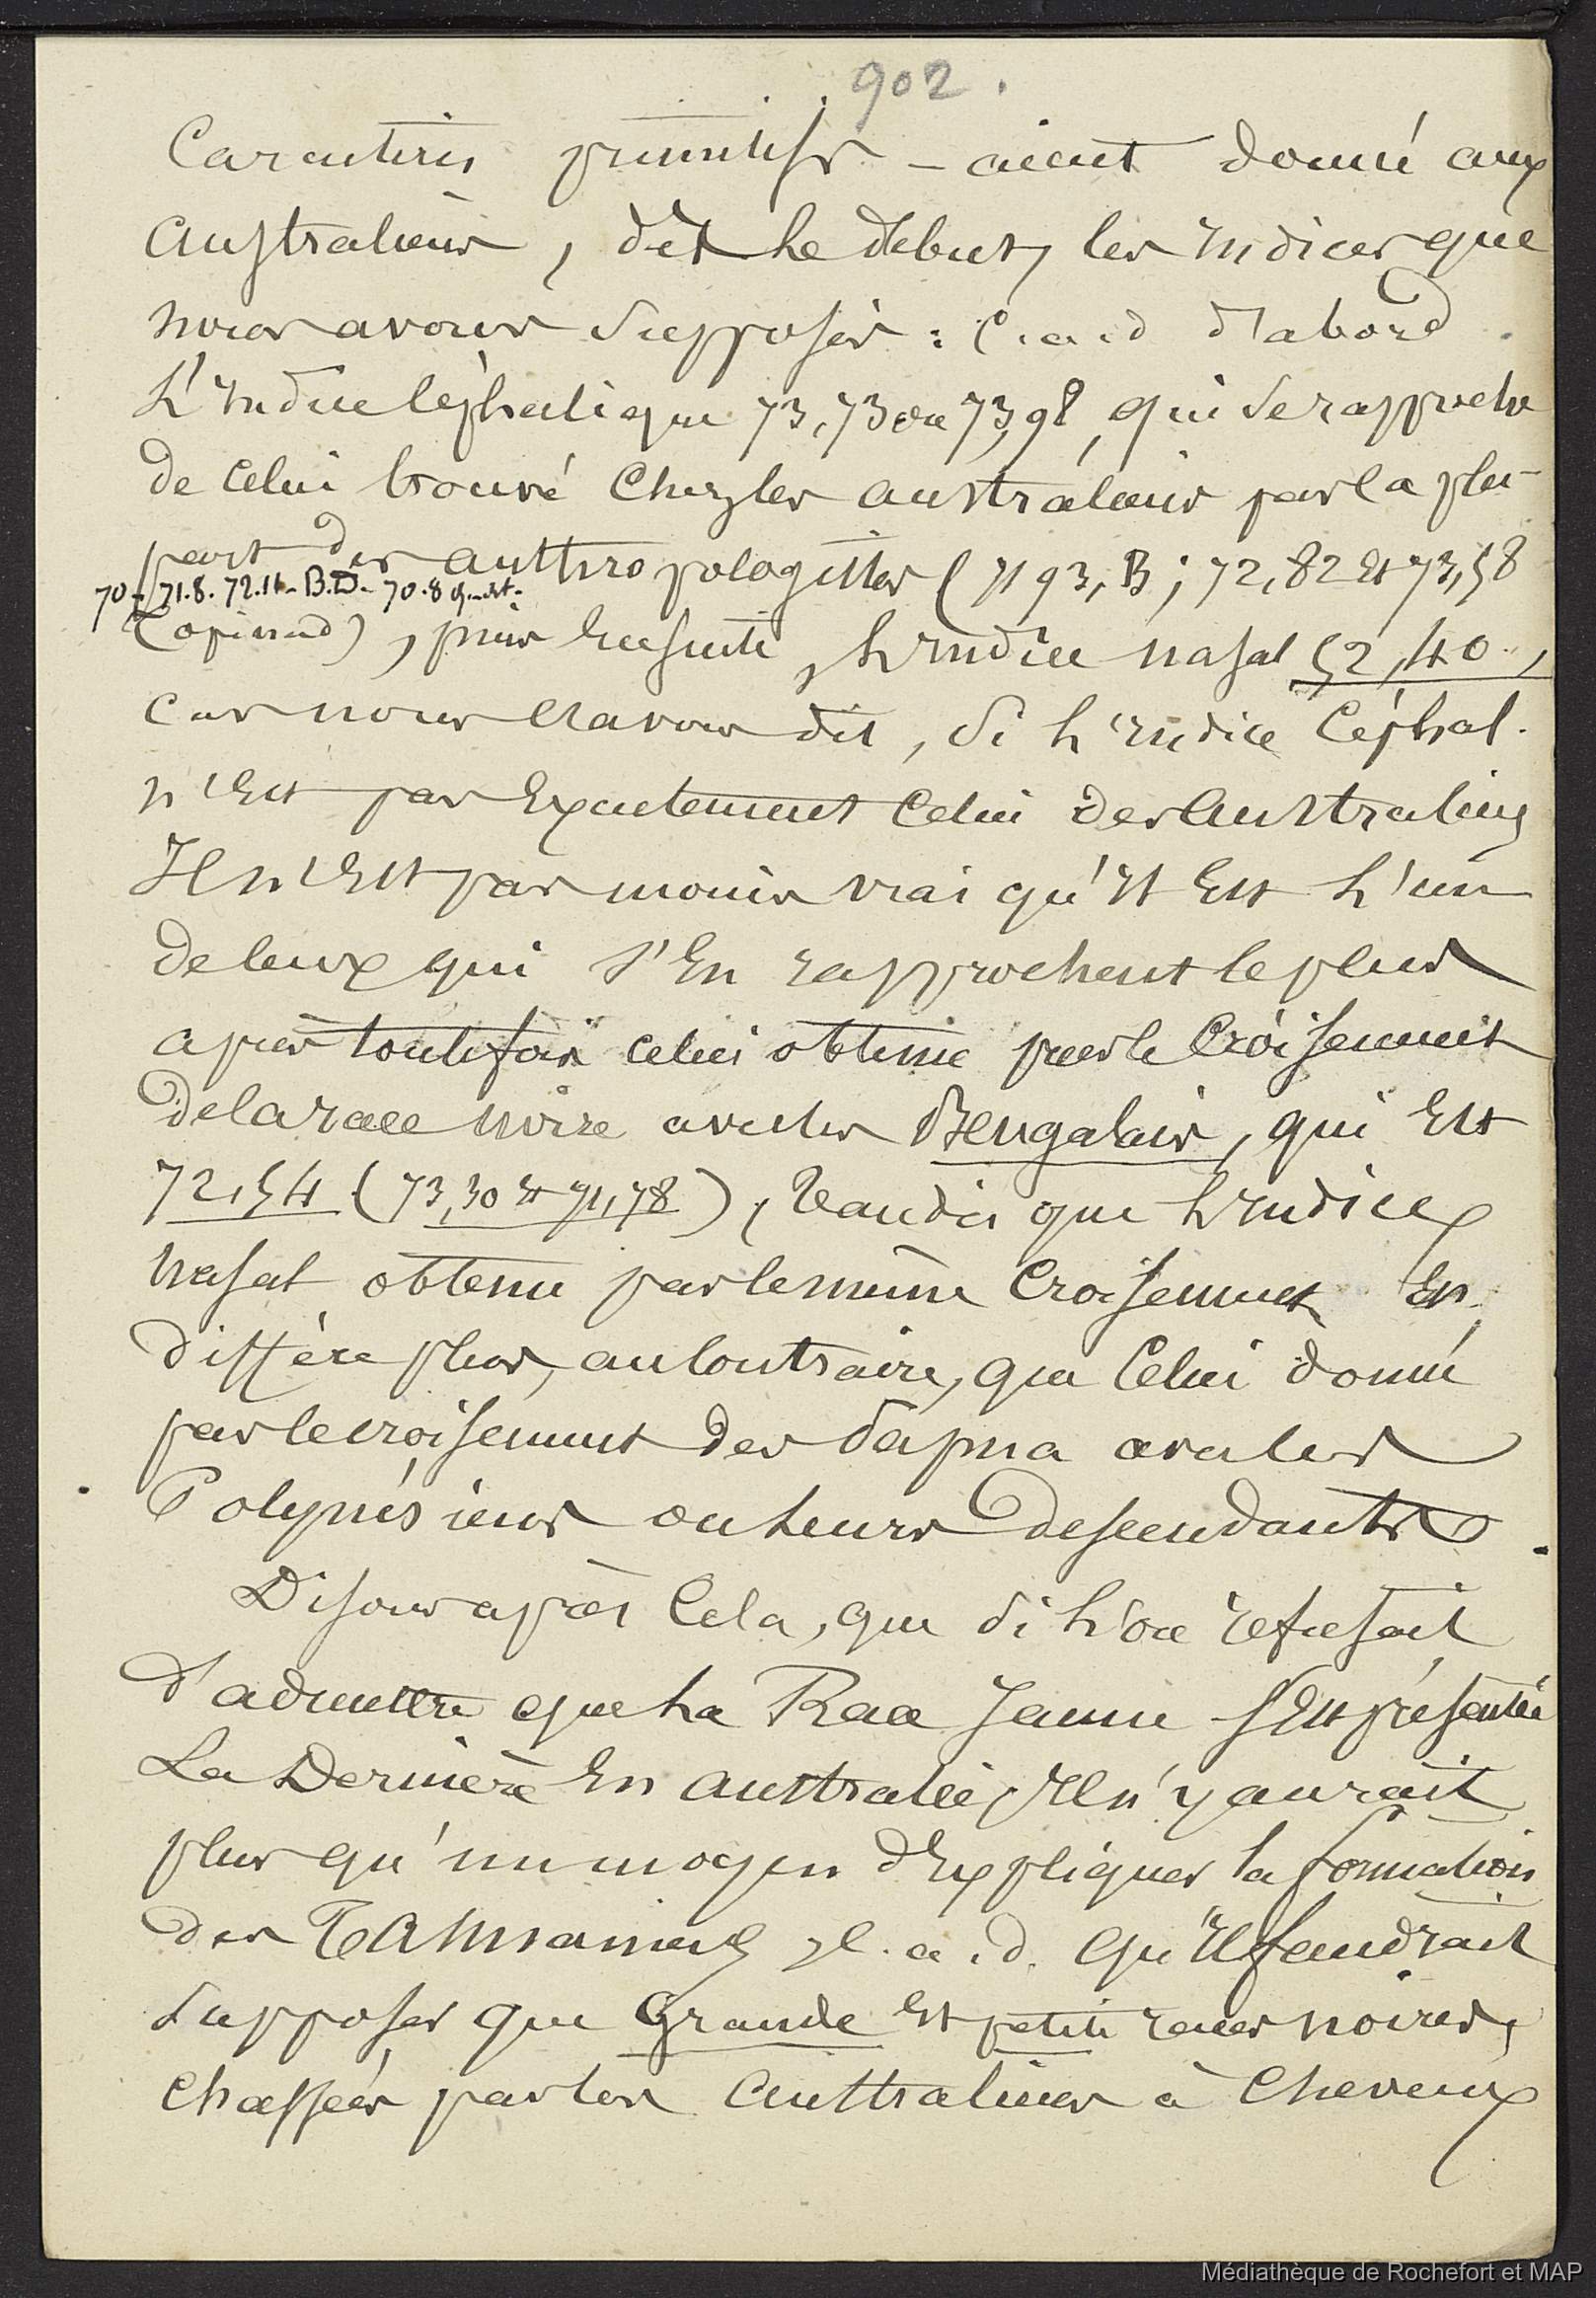 902.
Caractères primitifs – aient donné aux
Australiens, dès le début, les indices que
nous avons supposés : C.a.d d'abord
L'indice céphalique 73,73 ou 73,98, qui se rapproche
de celui trouvé chez les australiens par la plu-
part des anthropologistes (71 93, B ; 72,82 et 73,58
70 - 71.8. 72.14 - B.D. - 70.8
Topinard), puis ensuite, L'indice nasal 52,40,
car nous l'avons dit, si l'indice céphal.
n'est pas exactement celui des Australiens
Il n'est pas moins vrai qu'il est l'un
de ceux qui s'en rapprochent le plus
après toutefois celui obtenu par le croisement
de la race noire avec les Bengalais, qui est
72,54 (73,30 et 71,78), tandis que l'indice
nasal obtenu par le même croisement en
diffère plus, au contraire, que celui donné
par le croisement des Papua avec les
Polynésiens ou leurs descendants.
Disons après cela, que si l'on refusait
d'admettre que la Race Jaune s'est présentée
La Dernière en australie, Il n'y aurait
plus qu'un moyen d'expliquer la formation
des Tasmaniens, C.a.d. qu'il faudrait
supposer que Grande et petite races noires,
chassées par les Australiens à cheveux
Médiathèque de Rochefort et MAP